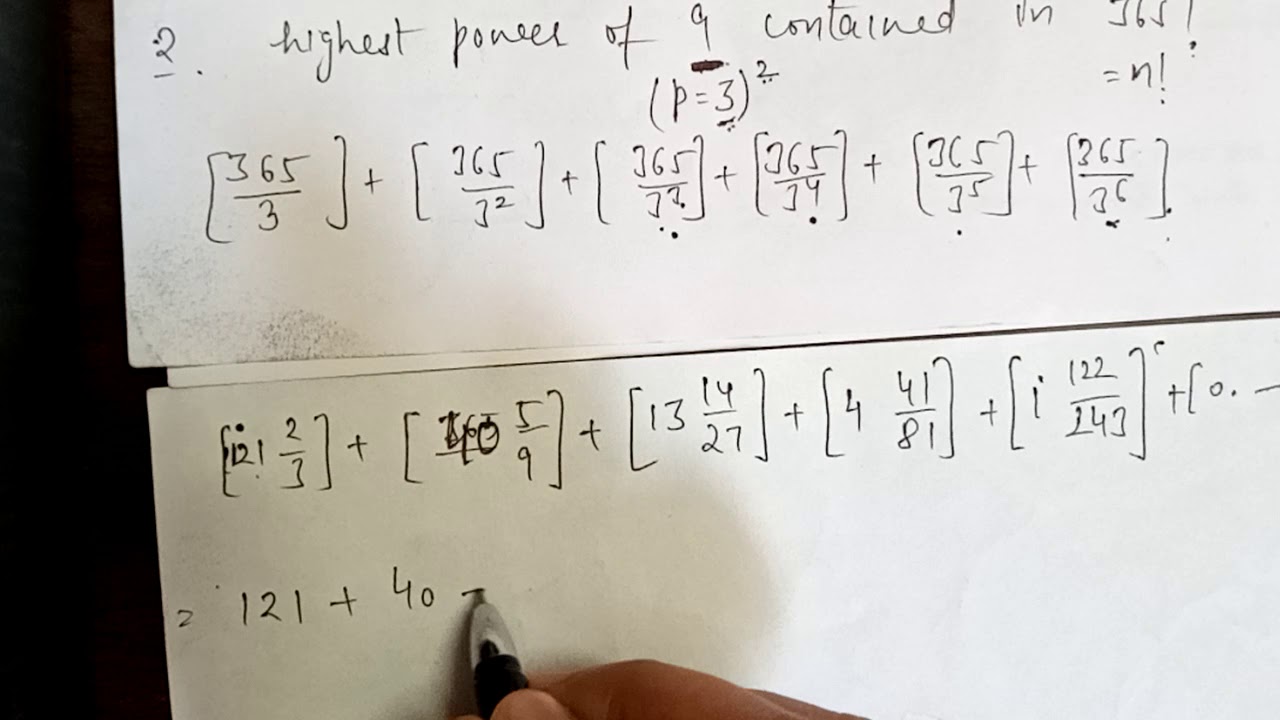 2. highest power of 9 contained in 365!?
(p=3)² = n!
[365/3] + [365/3²] + [365/3³] + [365/3⁴] + [365/3⁵] + [365/3⁶]
[121 2/3] + [40 5/9] + [13 14/27] + [4 41/81] + [1 122/243] + [0. —
= 121 + 40 -